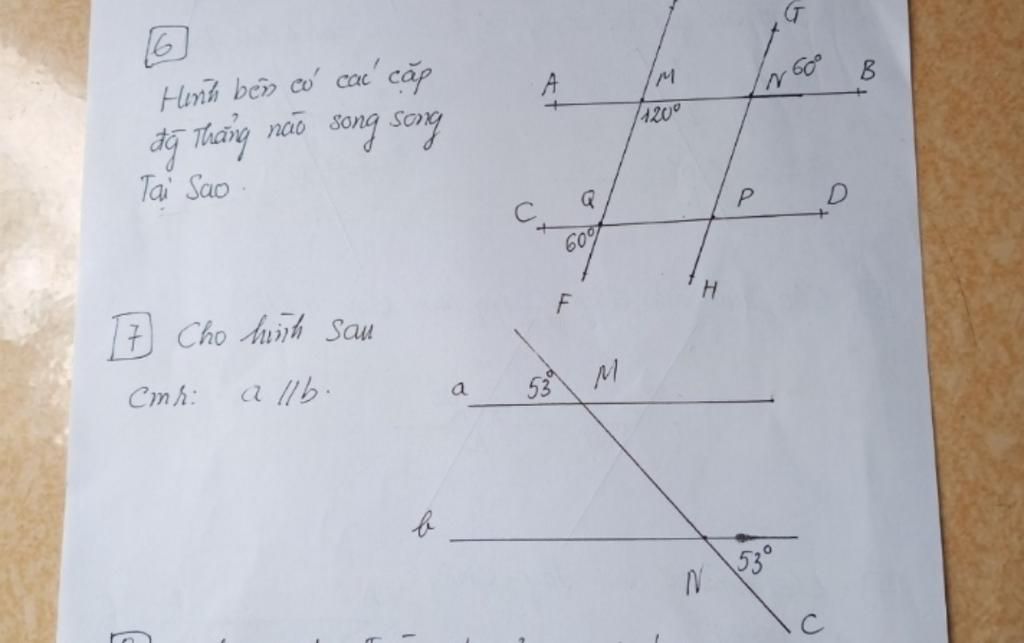 6
Hình bên có các cặp
đg thẳng nào song song
Tại Sao.
G
A
M
N
60°
B
120°
C
Q
P
D
60°
F
H
7 Cho hình sau
Cmr: a // b.
a
53°
M
b
N
53°
C